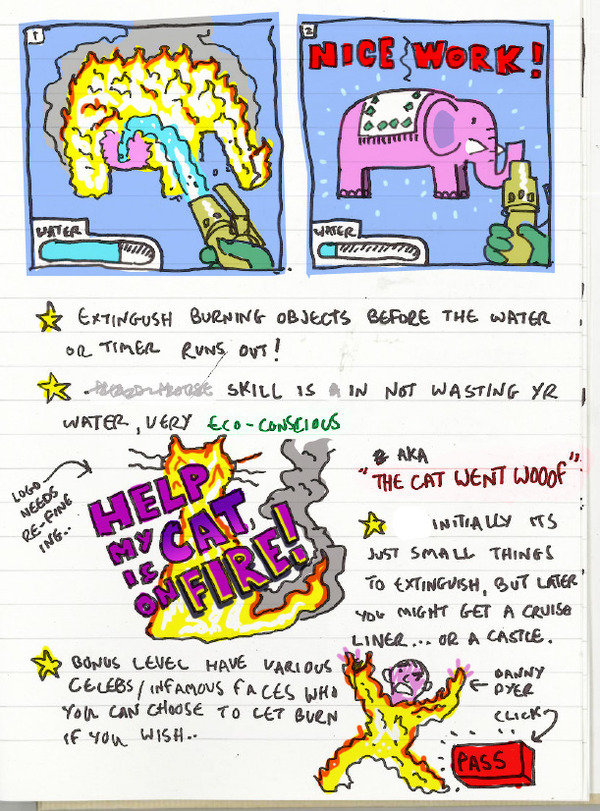 1
WATER
2
NICE WORK!
WATER
EXTINGUSH BURNING OBJECTS BEFORE THE WATER
OR TIMER RUNS OUT!
SKILL IS IN NOT WASTING YR
WATER, VERY ECO-CONSCIOUS
LOGO
NEEDS
RE-FINE
ING..
HELP
MY CAT,
IS
ON FIRE!
AKA
"THE CAT WENT WOOOF".
INITIALLY ITS
JUST SMALL THINGS
TO EXTINGUISH, BUT LATER
YOU MIGHT GET A CRUISE
LINER... OR A CASTLE.
BONUS LEVEL HAVE VARIOUS
CELEBS/INFAMOUS FACES WHO
YOU CAN CHOOSE TO LET BURN
IF YOU WISH..
DANNY
DYER
CLICK
PASS